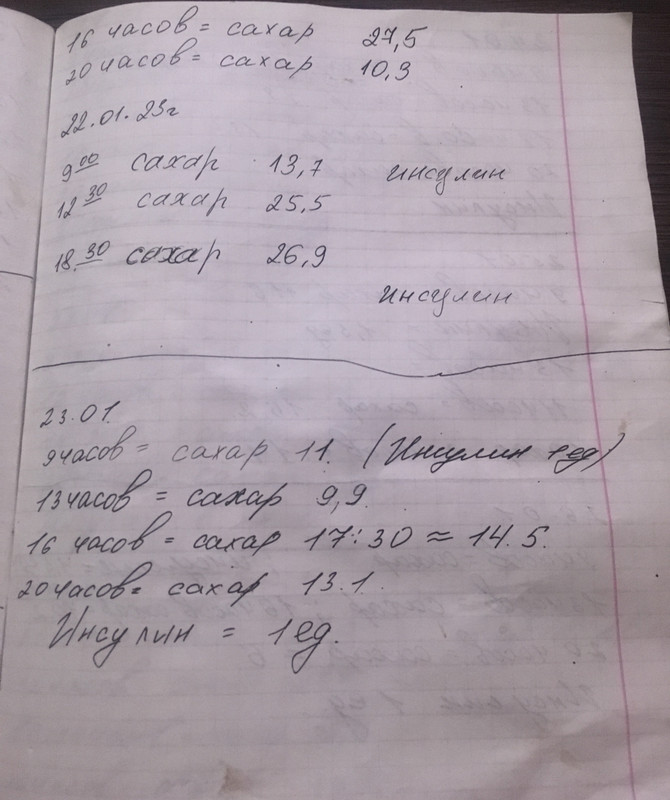 16 часов = сахар 27,5
20 часов = сахар 10,3
22.01.23г
9 00 сахар 13,7 инсулин
12 30 сахар 25,5
18. 30 сахар 26,9
инсулин
23.01.
9 часов = сахар 11. (Инсулин 1 ед)
13 часов = сахар 9,9.
16 часов = сахар 17:30 ≈ 14.5.
20 часов = сахар 13.1.
Инсулин = 1 ед.